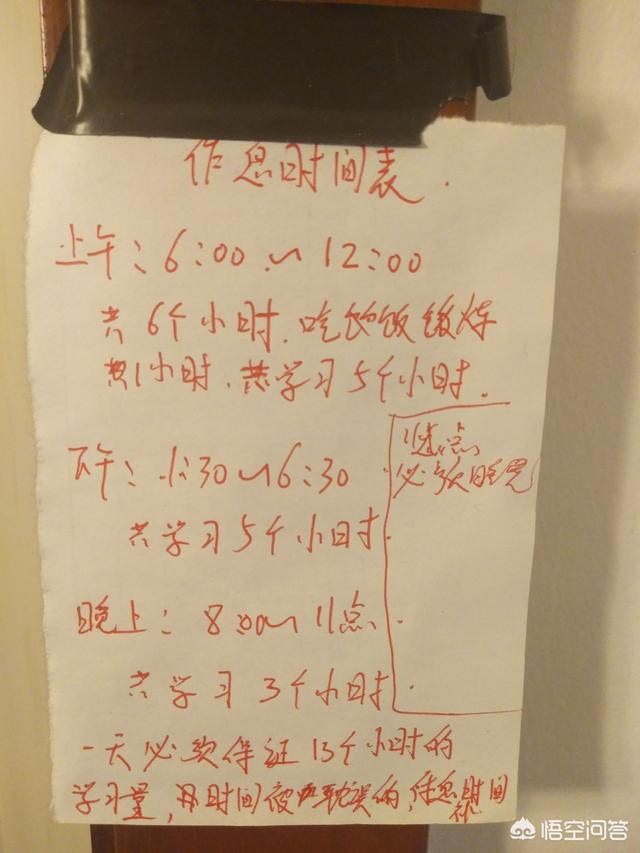 作息时间表.
上午:6:00~12:00
共6个小时.吃饭锻炼
共1小时.共学习5个小时.
下午:1:30~6:30
共学习5个小时.
11点
必须睡觉
晚上:8:00~11点.
共学习3个小时.
一天必须保证13个小时的
学习量,时间被耽误的,休息时间
悟空问答